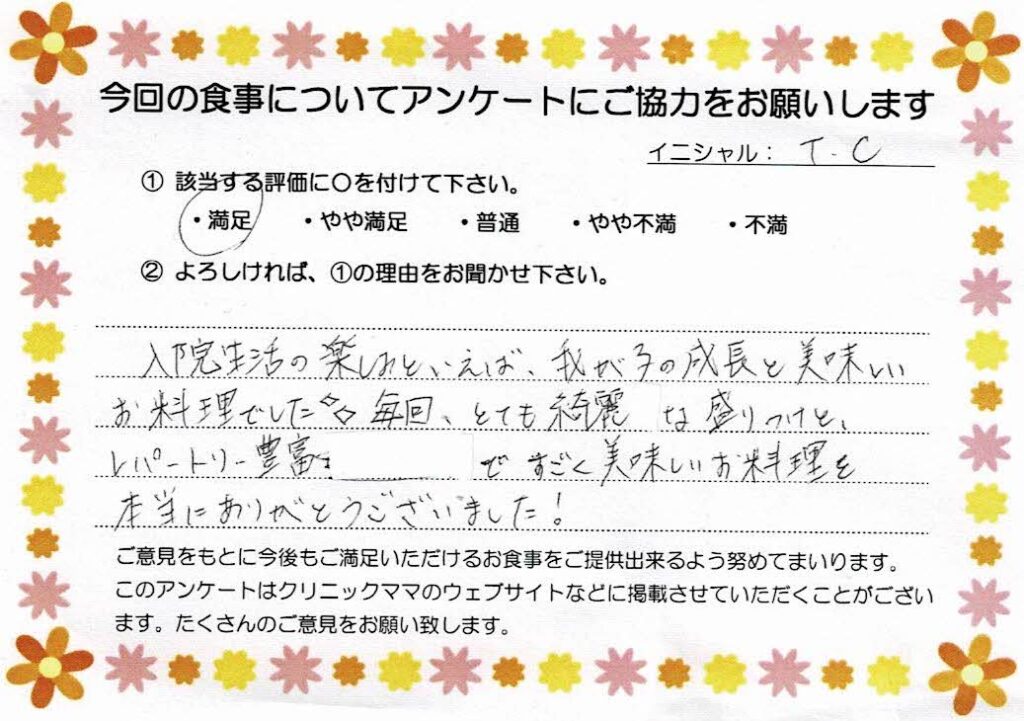 今回の食事についてアンケートにご協力をお願いします
イニシャル： T.C
① 該当する評価に○を付けて下さい。
・満足 ・やや満足 ・普通 ・やや不満 ・不満
② よろしければ、①の理由をお聞かせ下さい。
入院生活の楽しみといえば、我が子の成長と美味しい
お料理でした 毎回、とても綺麗な盛りつけと、
レパートリー豊富 ですごく美味しいお料理を
本当にありがとうございました！
ご意見をもとに今後もご満足いただけるお食事をご提供出来るよう努めてまいります。
このアンケートはクリニックママのウェブサイトなどに掲載させていただくことがござい
ます。たくさんのご意見をお願い致します。